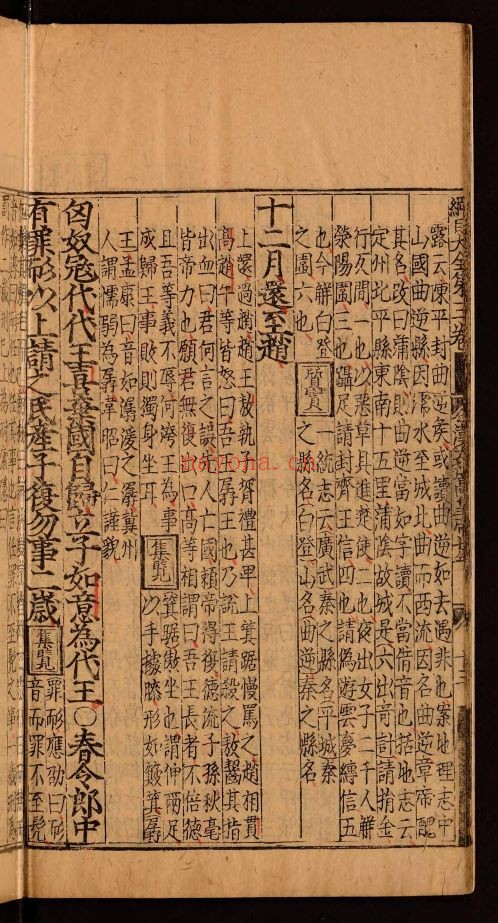 綱目大全第三卷
露云陳平封曲逆矦或讀曲逆如去遇非也案地理志中
山國曲逆縣因濡水至城北曲而西流因名曲逆章帝醜
其名改曰蒲陰則曲逆當如字讀不當借音也括地志云
定州北平縣東南十五里蒲陰故城是六出竒計請捐金
行反間一也以惡草具進楚使二也夜出女子二千人觧
滎陽圍三也躡足請封齊王信四也請偽遊雲夢縛信五
也今觧白登
之圍六也
質實
一統志云廣武秦之縣名平城秦
之縣名白登山名曲逆秦之縣名
十二月還至趙
上還過趙趙王敖執子壻禮甚卑上箕踞慢罵之趙相貫
高趙午等皆怒曰吾王孱王也乃說王請殺之敖齧其指
出血曰君何言之誤先人亡國頼帝得復德流子孫秋毫
皆帝力也願君無復出口高等相謂曰吾王長者不倍德
且吾等義不辱何洿王為事
成歸王事敗則獨身坐耳
集覽
箕踞傲坐也謂伸兩足
以手據膝形如簸箕孱
王孟康曰音如潺湲之潺冀州
人謂懦弱為孱韋昭曰仁謹貌
匈奴冦代代王喜棄國自歸立子如意為代王○春令郎中
有罪耐以上請之民產子復勿事二歳
集覽
罪耐應劭曰
音而罪不至髡
narona.cn